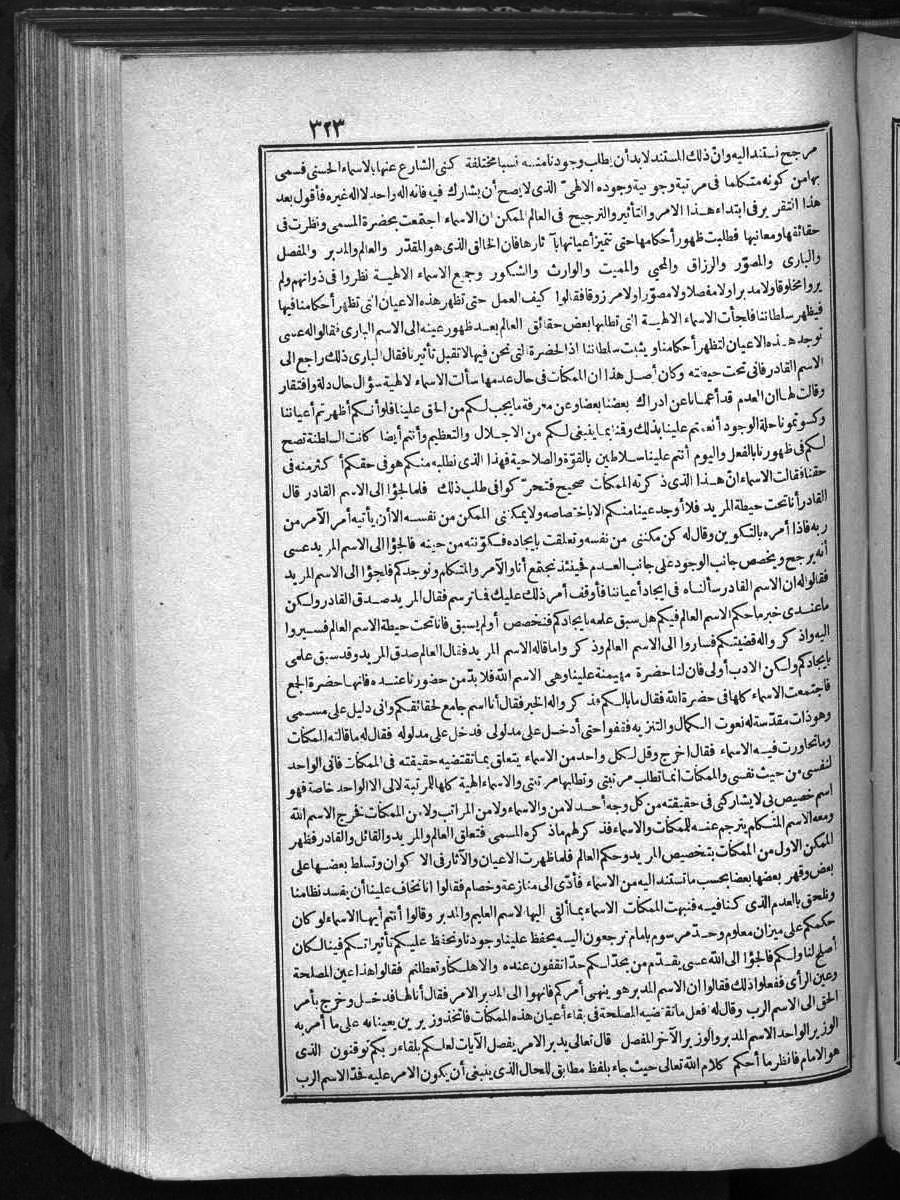 ٣٢٣
مرجح نستند اليه وان ذلك المستند لابد أن يطلب وجودنا منه نسبا مختلفة كنى الشارع عنها بالاسماء الحسنى فسمى
بها من كونه متكلما فى مرتبة وجوبية وجوده الالهى الذى لا يصح أن يشارك فيه فانه اله واحد لا اله غيره فأقول بعد
هذا التقرير فى ابتداء هذا الامر والتأثير والترجيح فى العالم الممكن ان الاسماء اجتمعت بحضرة المسمى ونظرت فى
حقائقها ومعانيها فطلبت ظهور أحكامها حتى تتميز أعيانها بآثارها فان الخالق الذى هو المقدّر والعالم والمدبر والمفصل
والبارى والمصوّر والرزاق والمحيي والمميت والوارث والشكور وجميع الاسماء الالهية نظروا فى ذواتهم ولم
يروا مخلوقا ولا مدبرا ولا مفصلا ولا مصوّرا ولا مرزوقا فقالوا كيف العمل حتى تظهر هذه الاعيان التى تظهر أحكامنا فيها
فيظهر سلطاننا فلجأت الاسماء الالهية التى تطلبها بعض حقائق العالم بعد ظهور عينه الى الاسم البارى فقالوا له عسى
توجد هذه الاعيان لتظهر أحكامنا ويثبت سلطاننا اذ الحضرة التى نحن فيها لا تقبل تأثيرنا فقال البارى ذلك راجع الى
الاسم القادر فانى تحت حيطته وكان أصل هذا ان الممكنات فى حال عدمها سألت الاسماء الالهية سؤال حال ذلة وافتقار
وقالت لها ان العدم قد أعمانا عن ادراك بعضنا بعضا وعن معرفة ما يجب لكم من الحق علينا فلو أنكم أظهرتم أعياننا
وكسوتمونا حلة الوجود أنعمتم علينا بذلك وقنا بما ينبغى لكم من الاجلال والتعظيم وأنتم أيضا كانت السلطنة تصح
لكم فى ظهورنا بالفعل واليوم أنتم علينا سلاطين بالقوّة والصلاحية فهذا الذى نطلبه منكم هو فى حقكم أكثر منه فى
حقنا فقالت الاسماء انّ هذا الذى ذكرته الممكنات صحيح فتحرّكوا فى طلب ذلك فلما لجؤا الى الاسم القادر قال
القادر أنا تحت حيطة المريد فلا أوجد عينا منكم الا باختصاصه ولا يمكننى الممكن من نفسه الا أن يأتيه أمر الآمر من
ربه فاذا أمره بالتكوين وقال له كن مكننى من نفسه وتعلقت بايجاده فكوّنته من حينه فالجؤا الى الاسم المريد عسى
أنه يرجح ويخصص جانب الوجود على جانب العدم فحينئذ نجتمع أنا والآمر والمتكلم ونوجدكم فلجؤا الى الاسم المريد
فقالوا له ان الاسم القادر سألناه فى ايجاد أعياننا فأوقف أمر ذلك عليك فما ترسم فقال المريد صدق القادر ولكن
ما عندى خبر ما حكم الاسم العالم فيكم هل سبق علمه بايجادكم فنخصص أولم يسبق فانا تحت حيطة الاسم العالم فسيروا
اليه واذكروا له قضيتكم فساروا الى الاسم العالم وذكروا ما قاله الاسم المريد فقال العالم صدق المريد وقد سبق علمى
بايجادكم ولكن الادب أولى فان لنا حضرة مهيمنة علينا وهى الاسم الله فلا بدّ من حضورنا عنده فانها حضرة الجمع
فاجتمعت الاسماء كلها فى حضرة الله فقال ما بالكم فذكروا له الخبر فقال أنا اسم جامع لحقائقكم وانى دليل على مسمى
وهو ذات مقدّسة له نعوت الكمال والتنزيه فقفوا حتى أدخل على مدلولى فدخل على مدلوله فقال له ما قالته الممكنات
وما تحاورت فيه الاسماء فقال اخرج وقل لكل واحد من الاسماء يتعلق بما تقتضيه حقيقته فى الممكنات فانى الواحد
لنفسى من حيث نفسى والممكنات انما تطلب مرتبتى وتطلبها مرتبتى والاسماء الالهية كلها للمرتبة لا لى الا الواحد خاصة فهو
اسم خصيص بى لا يشاركنى فى حقيقته من كل وجه أحد لا من الاسماء ولا من المراتب ولا من الممكنات فخرج الاسم الله
ومعه الاسم المتكلم يترجم عنه للممكنات والاسماء فذكر لهم ما ذكره المسمى فتعلق العالم والمريد والقائل والقادر فظهر
الممكن الاول من الممكنات بتخصيص المريد وحكم العالم فلما ظهرت الاعيان والآثار فى الاكوان وتسلط بعضها على
بعض وقهر بعضها بعضا بحسب ما تستند اليه من الاسماء فأدّى الى منازعة وخصام فقالوا انا نخاف علينا أن يفسد نظامنا
ونلحق بالعدم الذى كنا فيه فنبهت الممكنات الاسماء بما ألقى اليها الاسم العليم والمدبر وقالوا أنتم أيها الاسماء لو كان
حكمكم على ميزان معلوم وحدّ مرسوم بامام ترجعون اليه يحفظ علينا وجودنا ونحفظ عليكم تأثيراتكم فينا لكان
أصلح لنا ولكم فالجؤا الى الله عسى يقدّم من يحدّ لكم حدّا تقفون عنده والا هلكنا وتعطلتم فقالوا هذا عين المصلحة
وعين الرأى ففعلوا ذلك فقالوا ان الاسم المدبر هو ينهى أمركم فانهوا الى المدبر الامر فقال أنا لها فدخل وخرج بأمر
الحق الى الاسم الرب وقال له افعل ما تقتضيه المصلحة فى بقاء أعيان هذه الممكنات فاتخذ وزيرين يعينانه على ما أمر به
الوزير الواحد الاسم المدبر والوزير الآخر المفصل قال تعالى يدبر الامر يفصل الآيات لعلكم بلقاء ربكم توقنون الذى
هو الامام فانظر ما أحكم كلام الله تعالى حيث جاء بلفظ مطابق للحال الذى ينبغى أن يكون الامر عليه فحدّ الاسم الرب